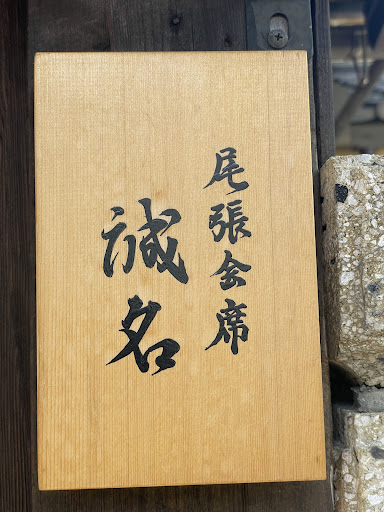 尾張会席
誠名